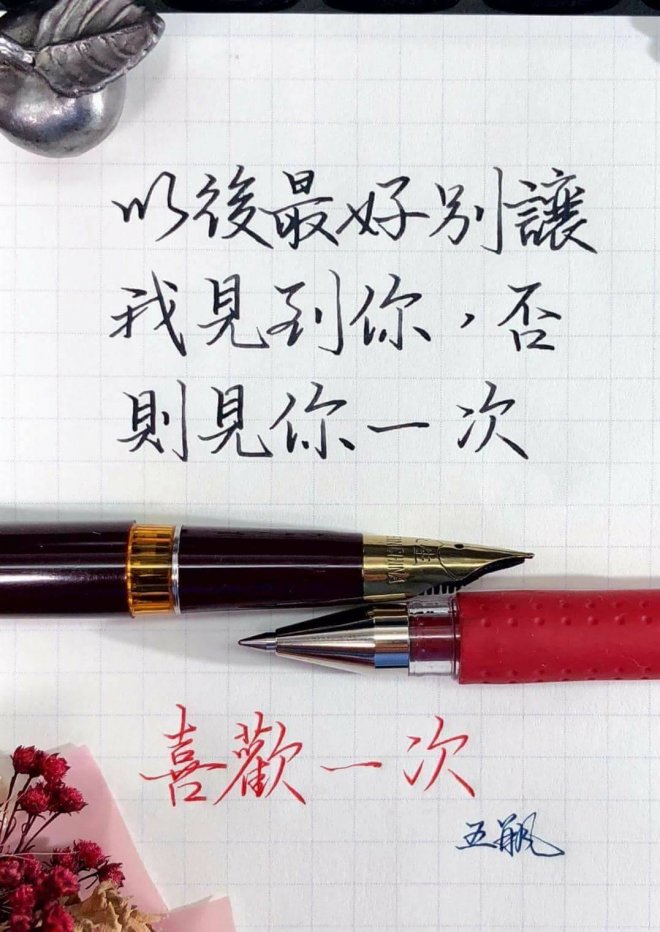 以後最好別讓
我見到你，否
則見你一次
喜歡一次